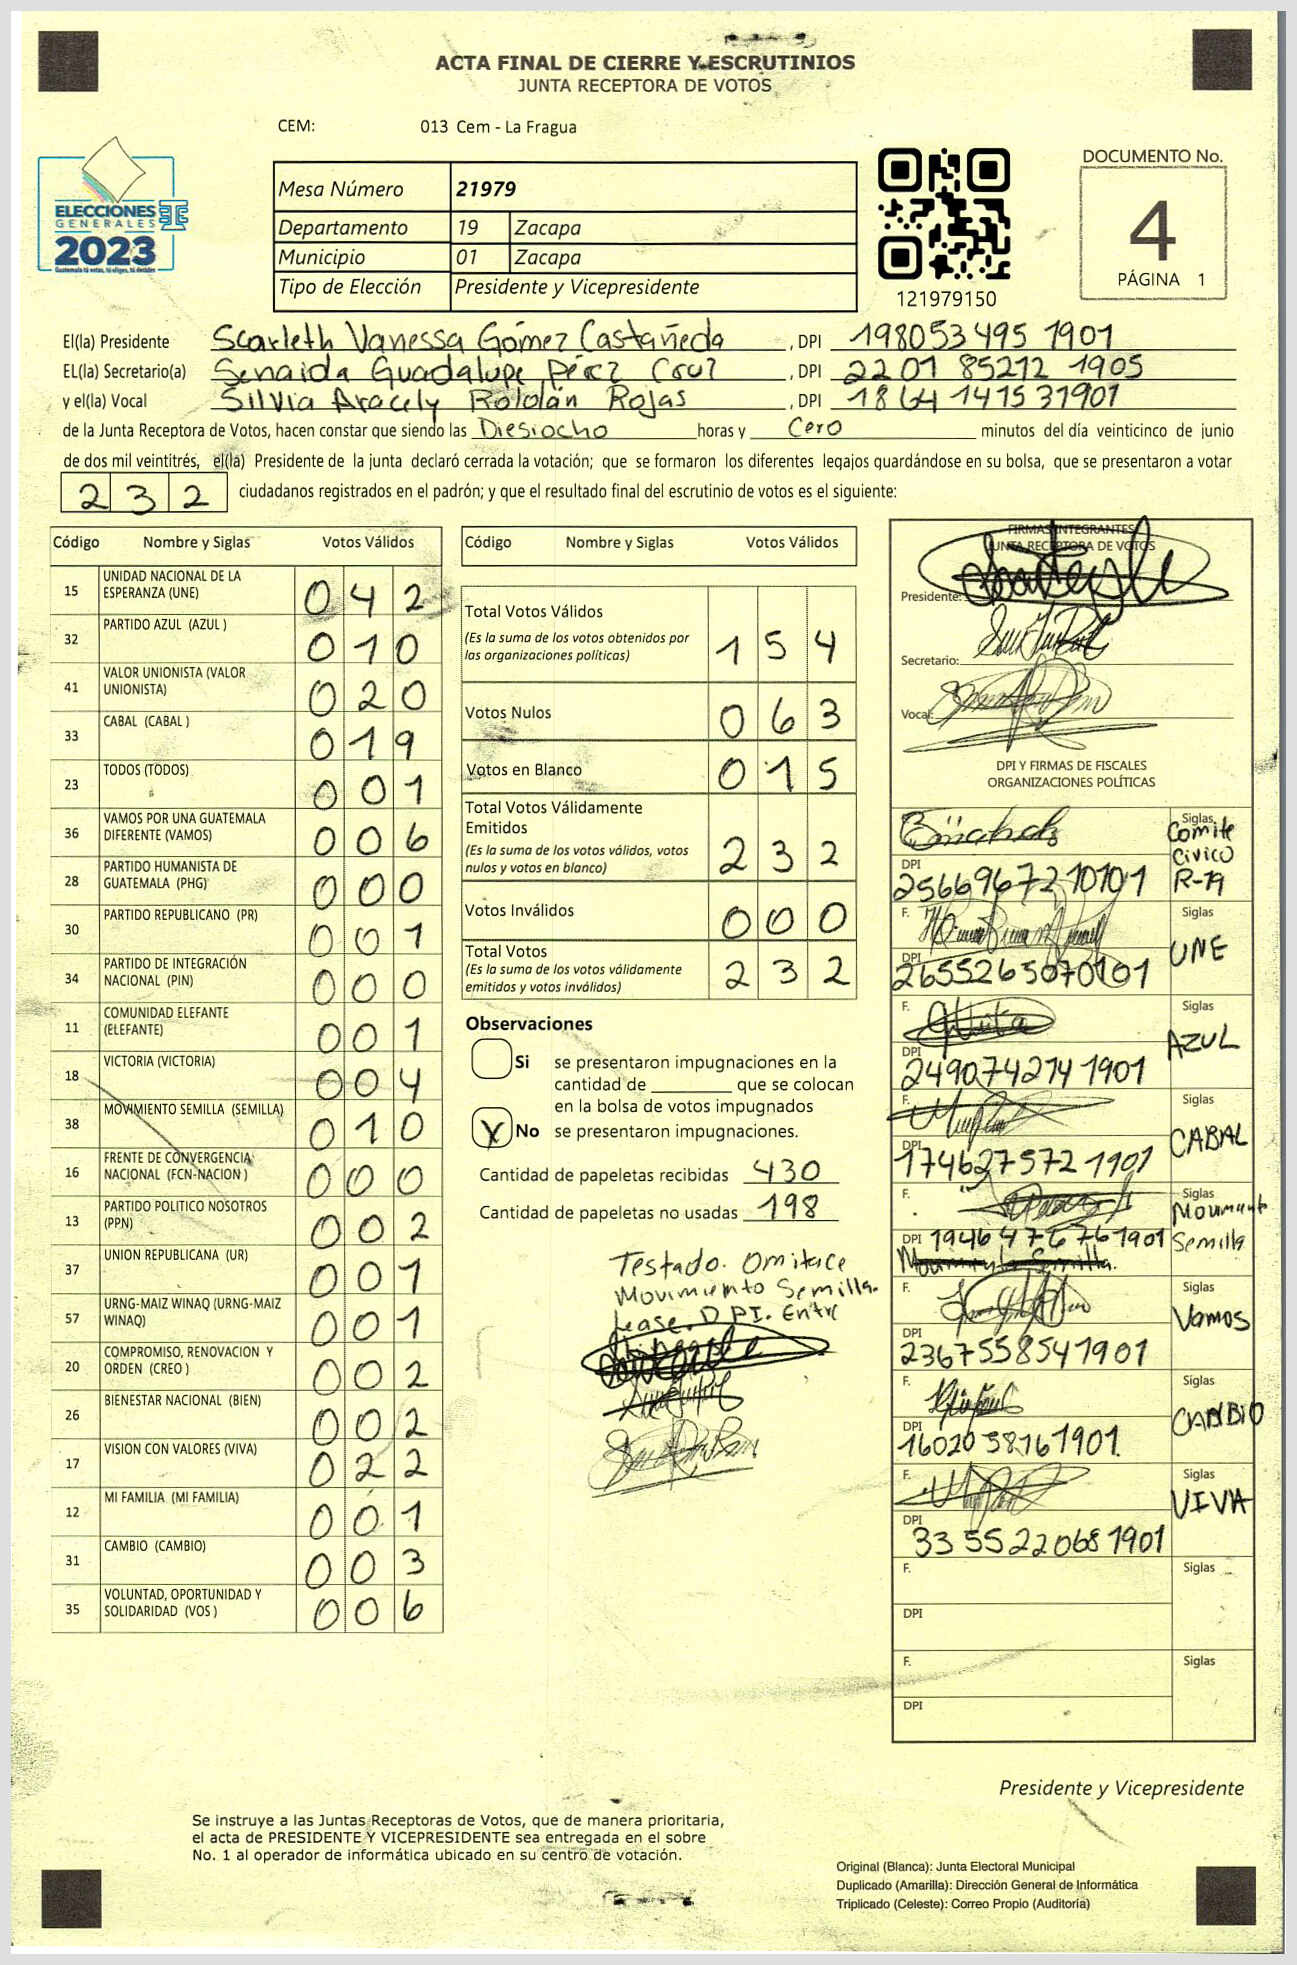 ACTA FINAL DE CIERRE Y ESCRUTINIOS
JUNTA RECEPTORA DE VOTOS
CEM: 013 Cem - La Fragua
ELECCIONES
GENERALES
2023
Guatemala tú votas, tú eliges, tú decides
Mesa Número 21979
Departamento 19 Zacapa
Municipio 01 Zacapa
Tipo de Elección Presidente y Vicepresidente
121979150
DOCUMENTO No.
4
PÁGINA 1
El(la) Presidente Scarleth Vanessa Gómez Castañeda, DPI 198053495 1901
EL(la) Secretario(a) Senaida Guadalupe Pérez Cruz, DPI 2201 85212 1905
y el(la) Vocal Silvia Aracely Rololán Rojas, DPI 1864 141531901
de la Junta Receptora de Votos, hacen constar que siendo las Diesiocho horas y Cero minutos del día veinticinco de junio
de dos mil veintitrés, el(la) Presidente de la junta declaró cerrada la votación; que se formaron los diferentes legajos guardándose en su bolsa, que se presentaron a votar
232 ciudadanos registrados en el padrón; y que el resultado final del escrutinio de votos es el siguiente:
Código Nombre y Siglas Votos Válidos
15 UNIDAD NACIONAL DE LA
ESPERANZA (UNE) 042
32 PARTIDO AZUL (AZUL ) 010
41 VALOR UNIONISTA (VALOR
UNIONISTA) 020
33 CABAL (CABAL ) 019
23 TODOS (TODOS) 001
36 VAMOS POR UNA GUATEMALA
DIFERENTE (VAMOS) 006
28 PARTIDO HUMANISTA DE
GUATEMALA (PHG) 000
30 PARTIDO REPUBLICANO (PR) 001
34 PARTIDO DE INTEGRACIÓN
NACIONAL (PIN) 000
11 COMUNIDAD ELEFANTE
(ELEFANTE) 001
18 VICTORIA (VICTORIA) 004
38 MOVIMIENTO SEMILLA (SEMILLA) 010
16 FRENTE DE CONVERGENCIA
NACIONAL (FCN-NACION ) 000
13 PARTIDO POLITICO NOSOTROS
(PPN) 002
37 UNION REPUBLICANA (UR) 001
57 URNG-MAIZ WINAQ (URNG-MAIZ
WINAQ) 001
20 COMPROMISO, RENOVACION Y
ORDEN (CREO ) 002
26 BIENESTAR NACIONAL (BIEN) 002
17 VISION CON VALORES (VIVA) 022
12 MI FAMILIA (MI FAMILIA) 001
31 CAMBIO (CAMBIO) 003
35 VOLUNTAD, OPORTUNIDAD Y
SOLIDARIDAD (VOS ) 006
Código Nombre y Siglas Votos Válidos
Total Votos Válidos
(Es la suma de los votos obtenidos por
las organizaciones políticas) 154
Votos Nulos 063
Votos en Blanco 015
Total Votos Válidamente
Emitidos
(Es la suma de los votos válidos, votos
nulos y votos en blanco) 232
Votos Inválidos 000
Total Votos
(Es la suma de los votos válidamente
emitidos y votos inválidos) 232
Observaciones
Si se presentaron impugnaciones en la
cantidad de ________ que se colocan
en la bolsa de votos impugnados
X No se presentaron impugnaciones.
Cantidad de papeletas recibidas 430
Cantidad de papeletas no usadas 198
Testado. Omitace
Movimiento Semilla.
Lease. DPI. Entre
FIRMAS INTEGRANTES
JUNTA RECEPTORA DE VOTOS
Presidente:
Secretario:
Vocal:
DPI Y FIRMAS DE FISCALES
ORGANIZACIONES POLÍTICAS
Siglas
Comite
Civico
R-79
DPI
2566967210101
F. Siglas
UNE
DPI
2655265070101
F. Siglas
AZUL
DPI
2490742741901
F. Siglas
CABAL
DPI
1746275721901
F. Siglas
Movimiento
Semilla
DPI 1946476761901
F. Siglas
Vamos
DPI
2367558541901
F. Siglas
CAMBIO
DPI
1602058761901
F. Siglas
VIVA
DPI
33 55 22068 1901
F. Siglas
DPI
F. Siglas
DPI
Presidente y Vicepresidente
Se instruye a las Juntas Receptoras de Votos, que de manera prioritaria,
el acta de PRESIDENTE Y VICEPRESIDENTE sea entregada en el sobre
No. 1 al operador de informática ubicado en su centro de votación.
Original (Blanca): Junta Electoral Municipal
Duplicado (Amarilla): Dirección General de Informática
Triplicado (Celeste): Correo Propio (Auditoría)